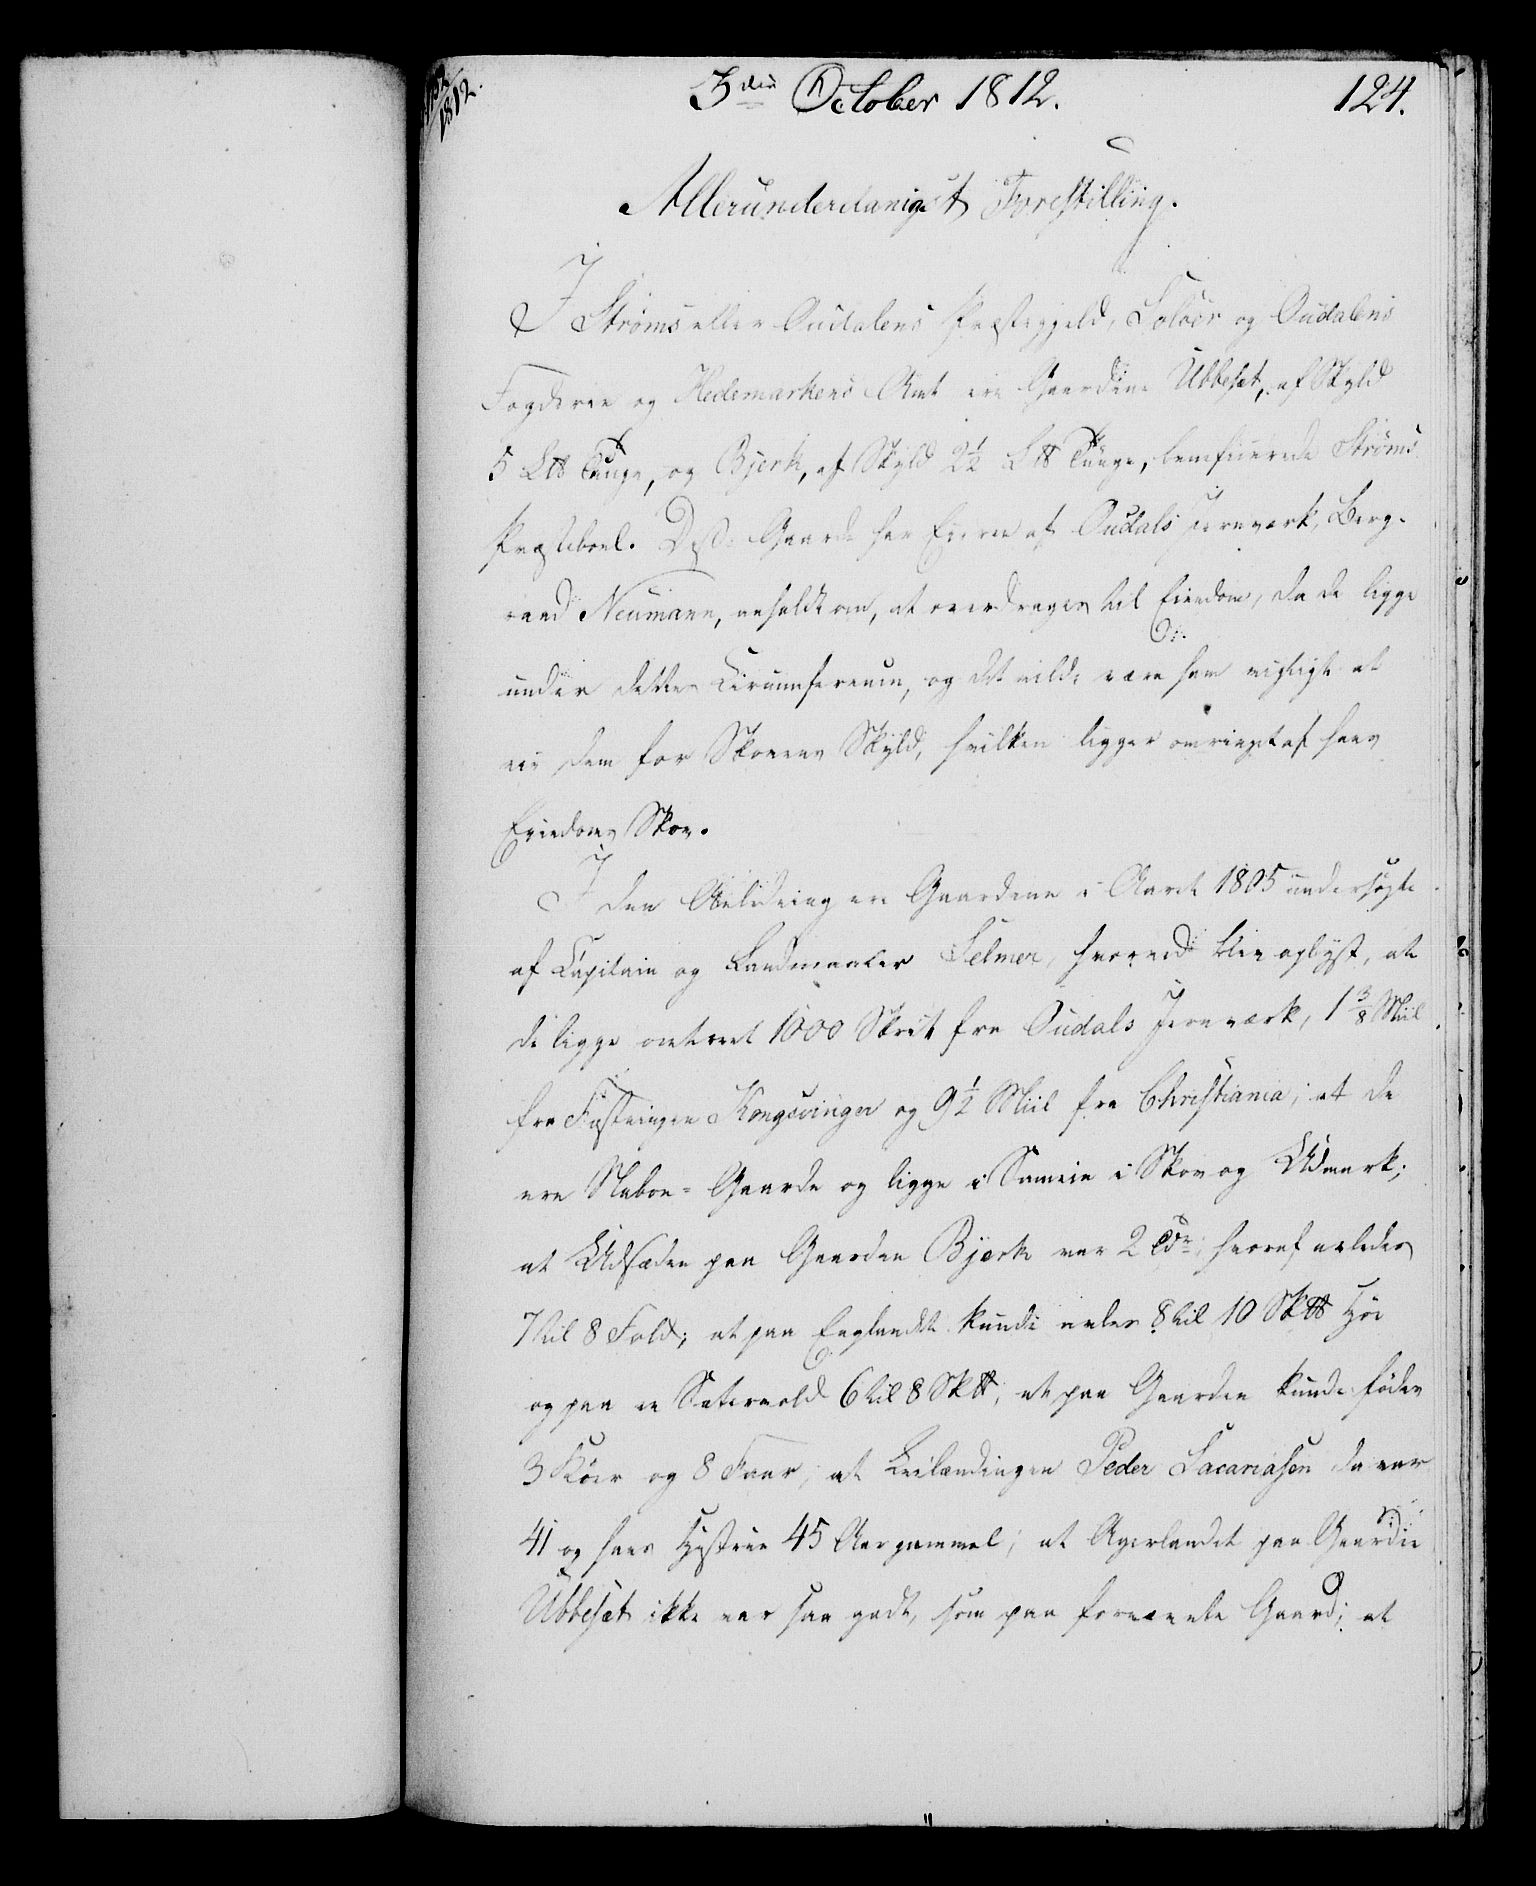 3die October 1812.
124.
1812.
Allerunderdanigst Forestilling.
I Strøms eller Oudalens Præstegjeld, Soløer og Oudalens
Fogderie og Hedemarkens Amt ere Gaardene Ubbeset, af Skyld
5 L℔ Tunge, og Bjerk, af Skyld 2½ L℔ Tunge, beneficerede Strøms
Præsteboel. Disse Gaarde har Eieren af Oudals Jernværk, Berg-
raad Neumann, anholdt om, at overdrages til Eiendom, da de ligge
under dettes Circumference, og det vilde være ham vigtigt at
eie dem for Skovens Skyld, hvilken ligger omringet af hans
Eiendoms Skov.
I den Anledning ere Gaardene i Aaret 1805 undersøgte
af Capitain og Landmaaler Selmer, hvorved blev oplyst, at
de ligge omtrent 1000 Skrit fra Oudals Jernværk, 1 3/8 Miil
fra Fæstningen Kongsvinger og 9½ Miil fra Christiania; at de
ere Naboe-Gaarde og ligge i Sameie i Skov og Udmark;
at Udsæden paa Gaarden Bjerk var 2 Tdr, hvoraf avledes
7 til 8 Fold; at paa Englandet kunde avles 8 til 10 Sk℔ Høe
og paa en Sætervold 6 til 8 Sk℔, at paa Gaarden kunde fødes
3 Køer og 8 Faar; at Leilændingen Peder Sacariasen da var
41 og hans Hustrue 45 Aar gammel; at Agerlandet paa Gaarden
Ubbeset ikke var saa godt, som paa fornævnte Gaard; at